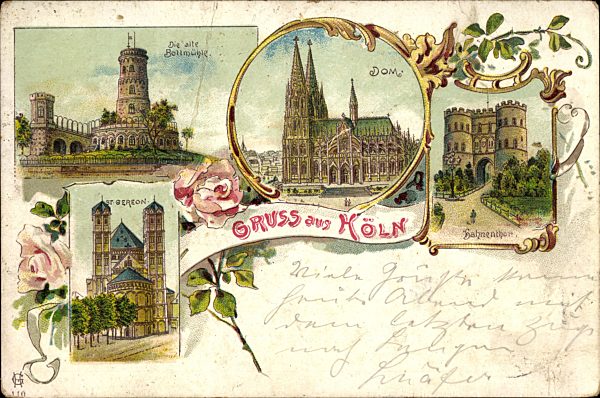 Die alte
Bottmühle
DOM.
ST. GEREON.
Hahnenthor.
GRUSS aus KÖLN
Viele Grüße komme
heute Abend mit
dem letzten Zug
nach
Schäfer
110